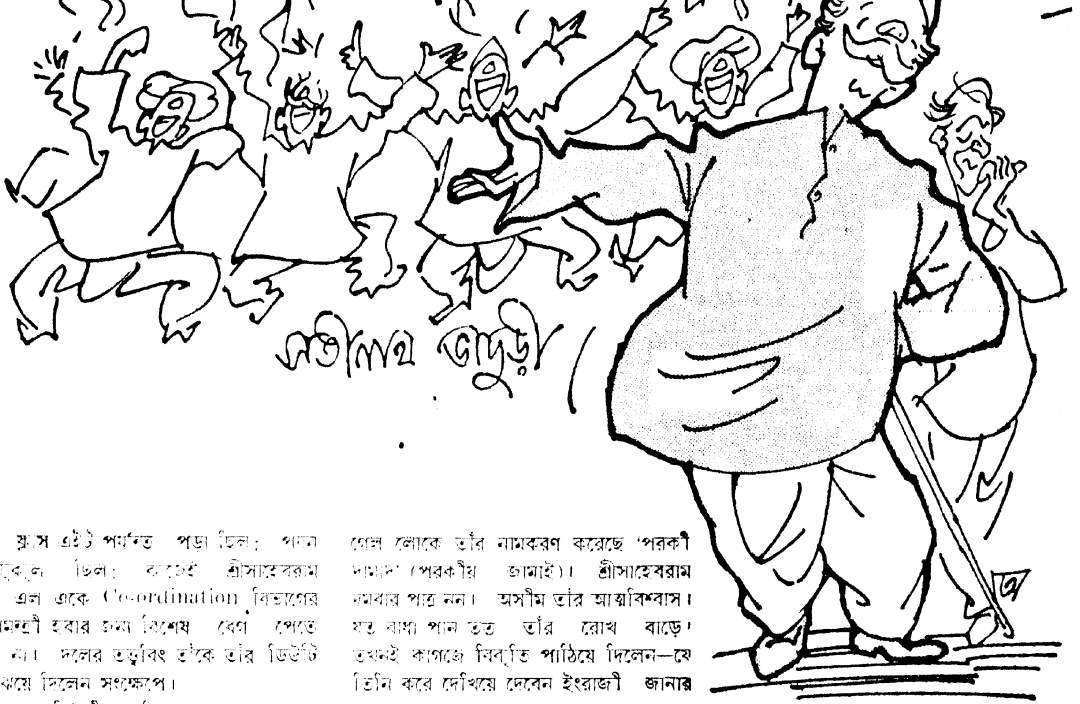 সতীনাথ ভাদুড়ী
ক্লাস এইট পর্যন্ত পড়া ছিল;
ছিল; কাজেই শ্রীসাহেবরাম
এল একে Co-ordination বিভাগের
হবার জন্য বিশেষ বেগ পেতে
না। দলের তত্ত্ববিৎ তাঁকে তাঁর ডিউটি
দিলেন সংক্ষেপে।
গেল লোকে তাঁর নামকরণ করেছে 'পরকী
দামাদ' (পরকীয় জামাই)। শ্রীসাহেবরাম
দমবার পাত্র নন। অসীম তাঁর আত্মবিশ্বাস।
যত বাধা পান তত তাঁর রোখ বাড়ে।
তখনই কাগজে বিবৃতি পাঠিয়ে দিলেন—যে
তিনি করে দেখিয়ে দেবেন ইংরাজী জানার